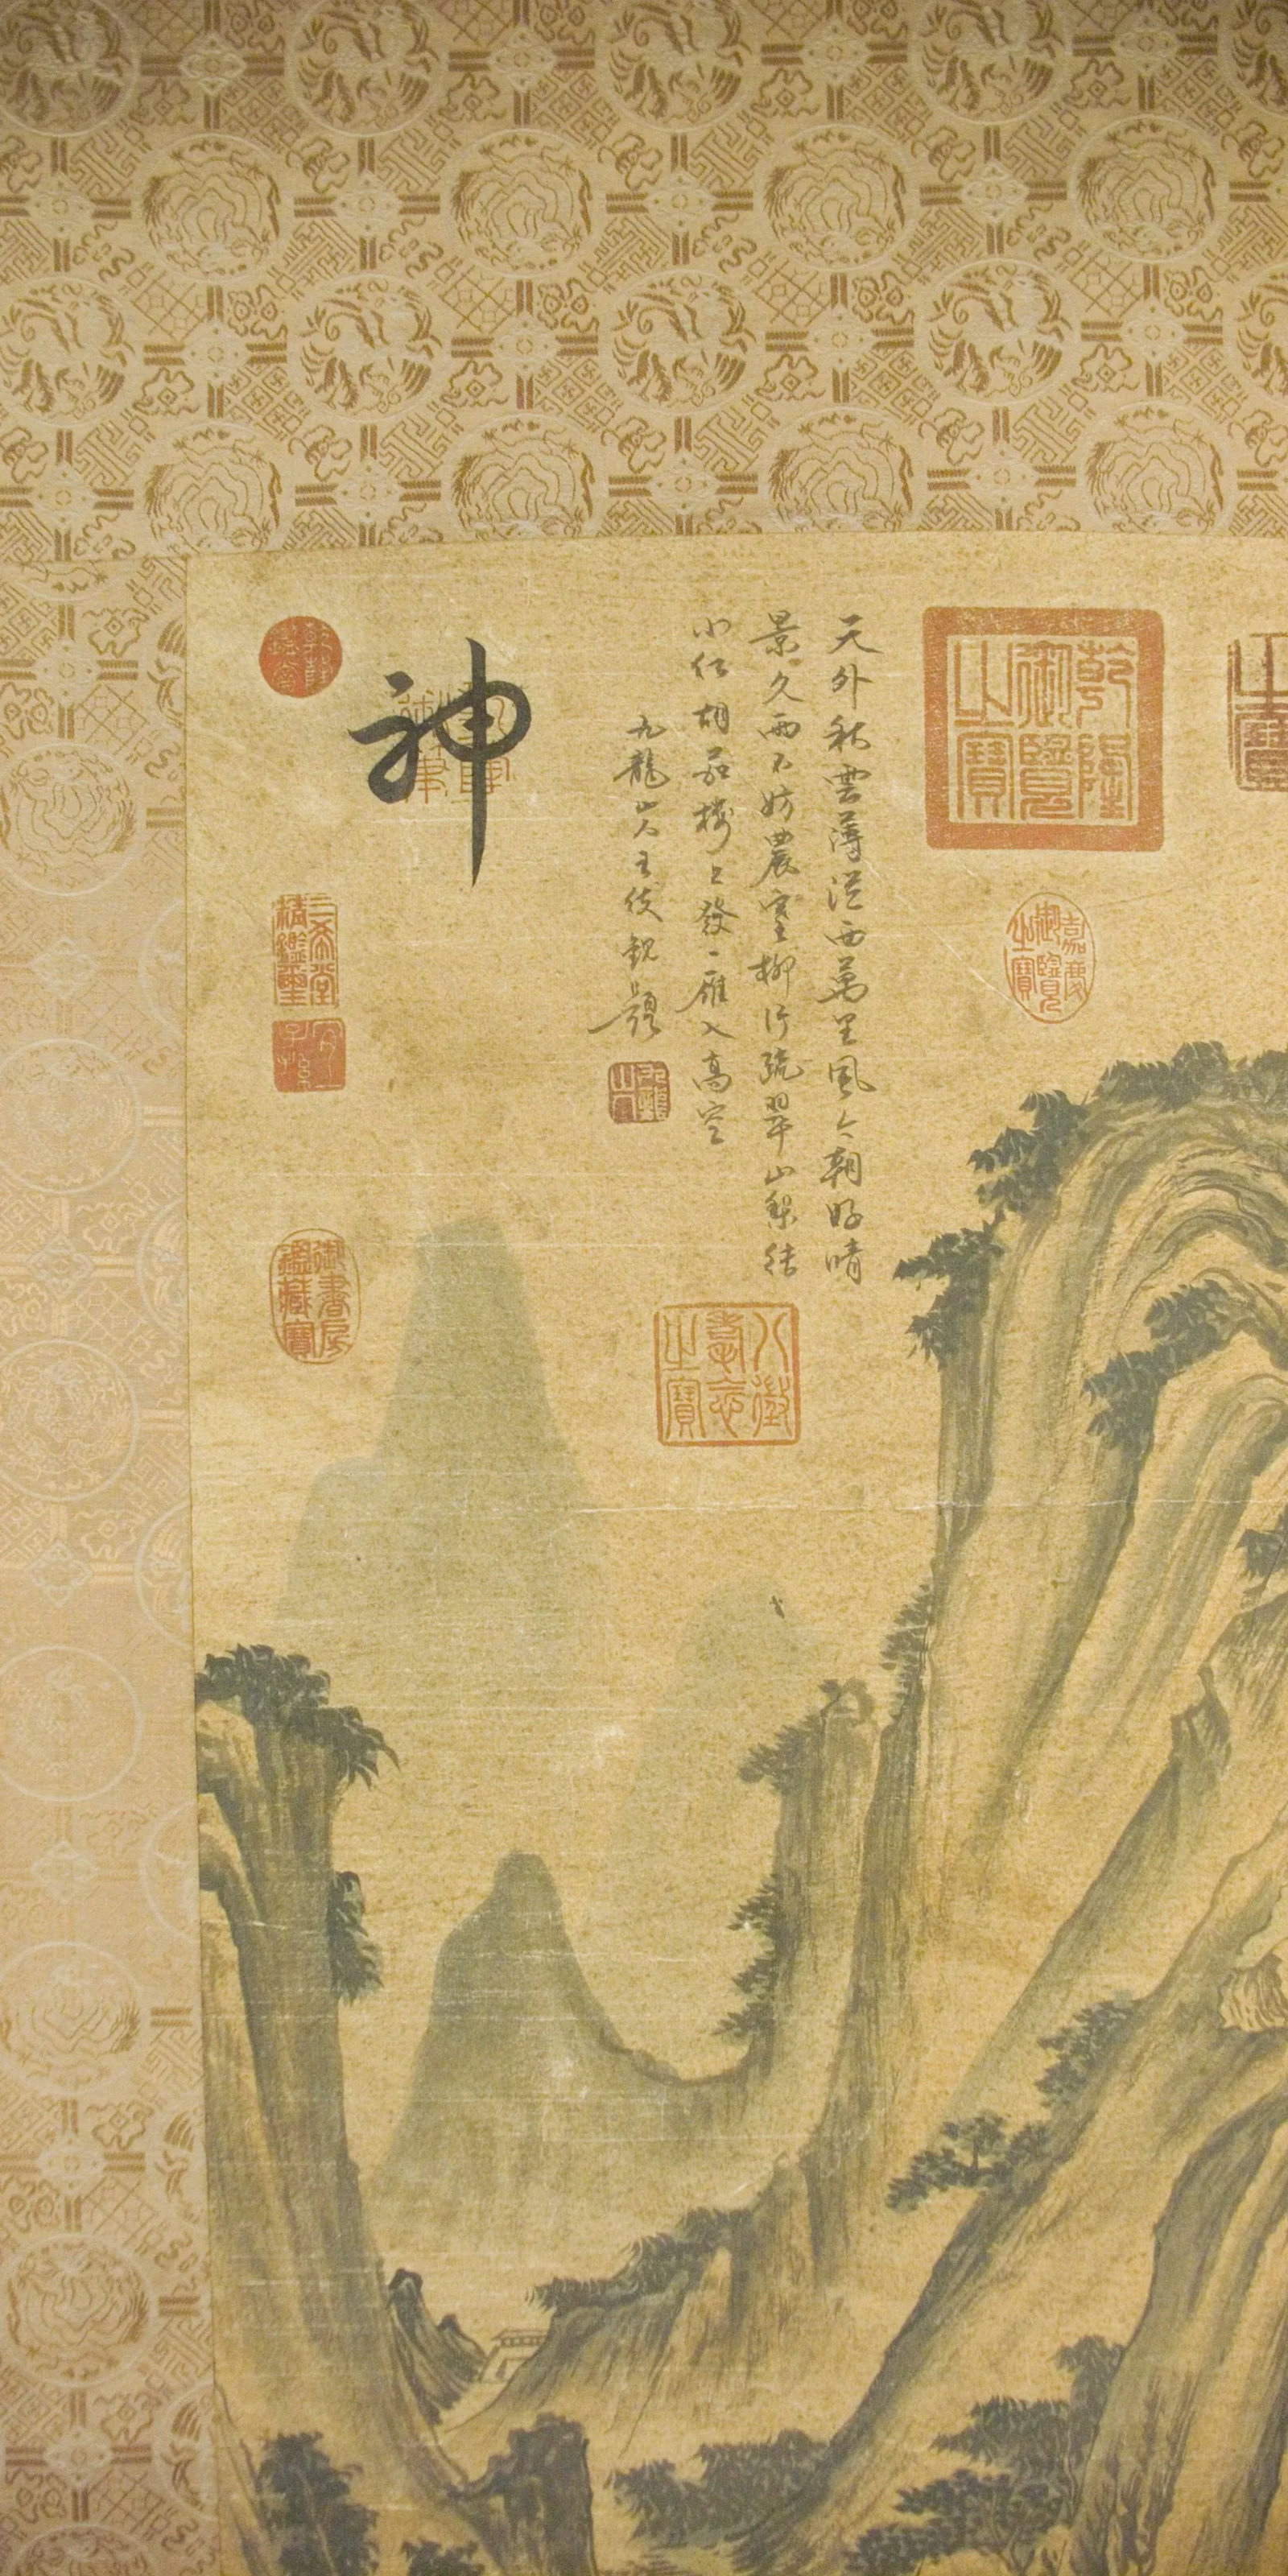 之寶
乾隆御覽之寶
嘉慶御覽之寶
天外秋雲薄從西萬里風今朝好晴
景久雨不妨農塞柳行疏翠山梨結
小紅胡笳樓上發一雁入高空
九龍山人王紱題
九龍山人
八徵耄念之寶
神
乾隆鑑賞
三希堂精鑑璽
宜子孫
御書房鑑藏寶